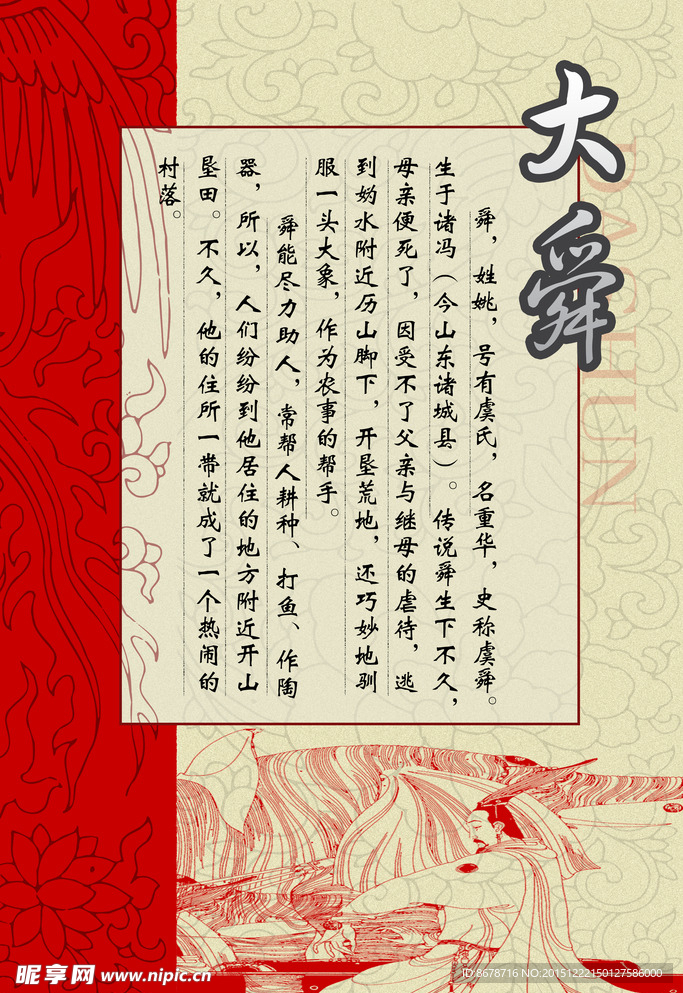 大舜
DASHUN
舜，姓姚，号有虞氏，名重华，史称虞舜。
生于诸冯（今山东诸城县）。传说舜生下不久，
母亲便死了，因受不了父亲与继母的虐待，逃
到妫水附近历山脚下，开垦荒地，还巧妙地驯
服一头大象，作为农事的帮手。
舜能尽力助人，常帮人耕种、打鱼、作陶
器，所以，人们纷纷到他居住的地方附近开山
垦田。不久，他的住所一带就成了一个热闹的
村落。
昵享网 www.nipic.cn
ID:8678716 NO:20151222150127586000